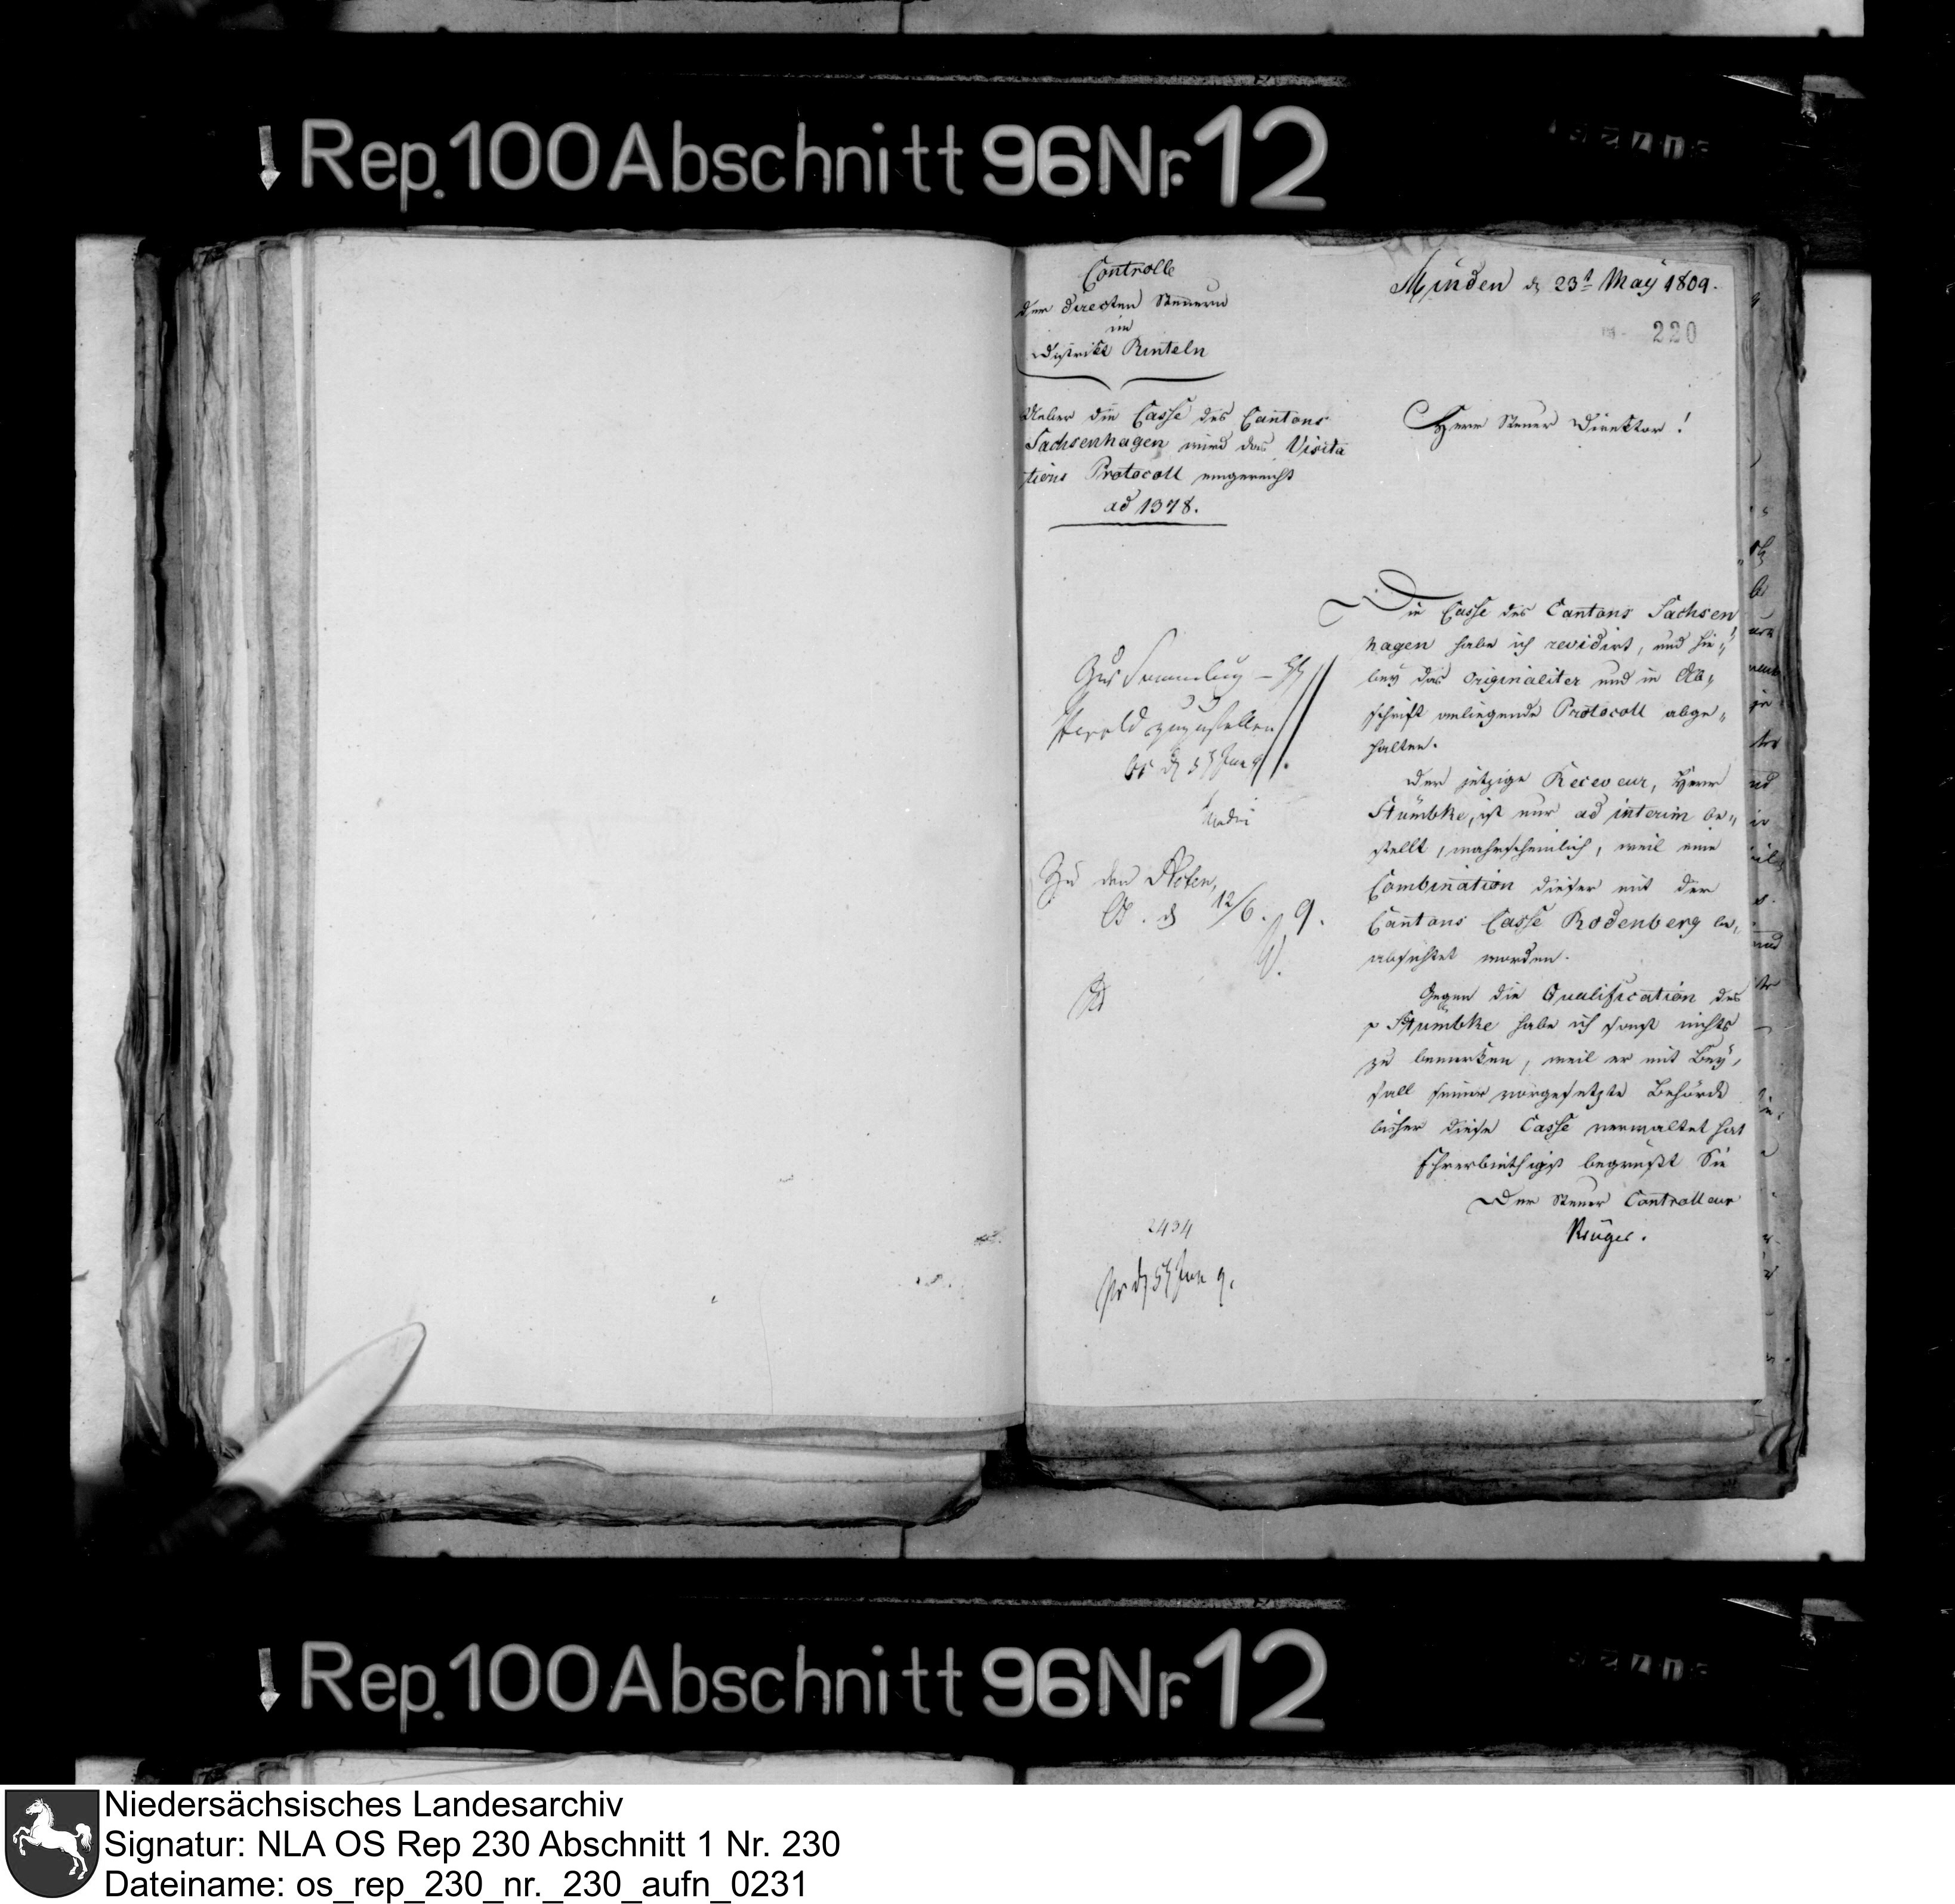 Rep. 100 Abschnitt 96 Nr. 12
Controlle
der directen Steuern
im
District Rinteln
Ueber die Casse des Cantons
Sachsenhagen wird das Visita
tions Protocoll eingereicht
ad 1378.
Minden d 23t May 1809.
220
Herr Steuer Direktor!
Die Casse des Cantons Sachsen
hagen habe ich revidirt, und hie„
bey das originaliter und in Ab„
schrift anliegende Protocoll abge„
halten.
Der jetzige Receveur, Herr
Stümbke, ist nur ad interim be„
stellt, wahrscheinlich, weil eine
Combination dieser mit der
Cantons Casse Rodenberg be„
absichtet worden.
Gegen die Qualification des
p Stümbke habe ich sonst nichts
zu bemerken, weil er mit Bey„
fall seiner vorgesetzte Behörde
bisher diese Casse verwaltet hat
Ehrerbiethigst begrüßt Sie
Der Steuer Controlleur
Krüger.
zuzustellen
Zu den Acten,
12/6. 9.
2434
Rep. 100 Abschnitt 96 Nr. 12
Niedersächsisches Landesarchiv
Signatur: NLA OS Rep 230 Abschnitt 1 Nr. 230
Dateiname: os_rep_230_nr._230_aufn_0231